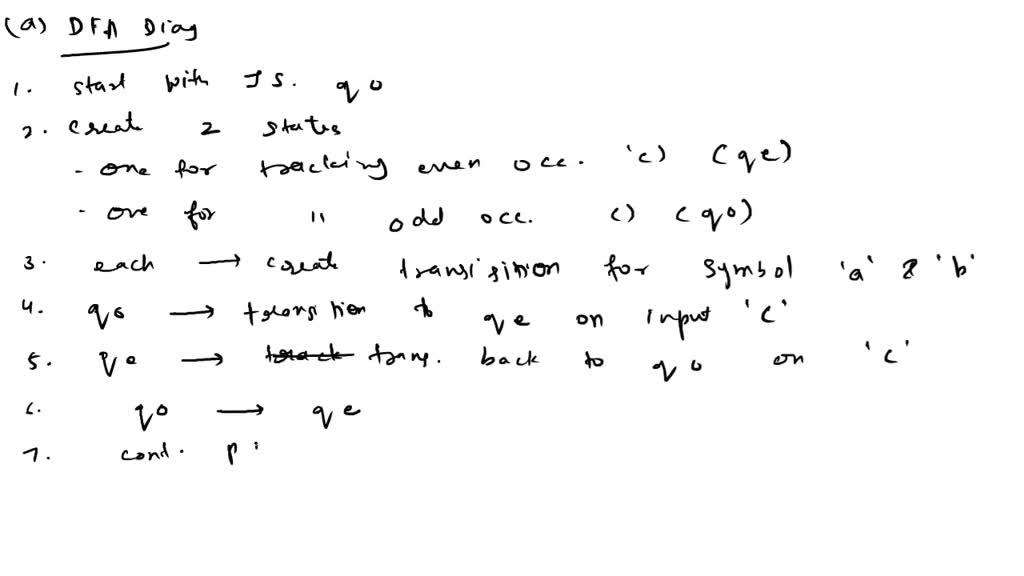 (a) DFA Diag
1. start with IS. q0
2. create 2 states
- one for tracking even occ. 'c) (qe)
- one for " odd occ. c) (q0)
3. each → create transisition for symbol 'a' & 'b'
4. q0 → transition to qe on input 'c'
5. qe → trans. back to q0 on 'c'
6. q0 → qe
7. cond. pi